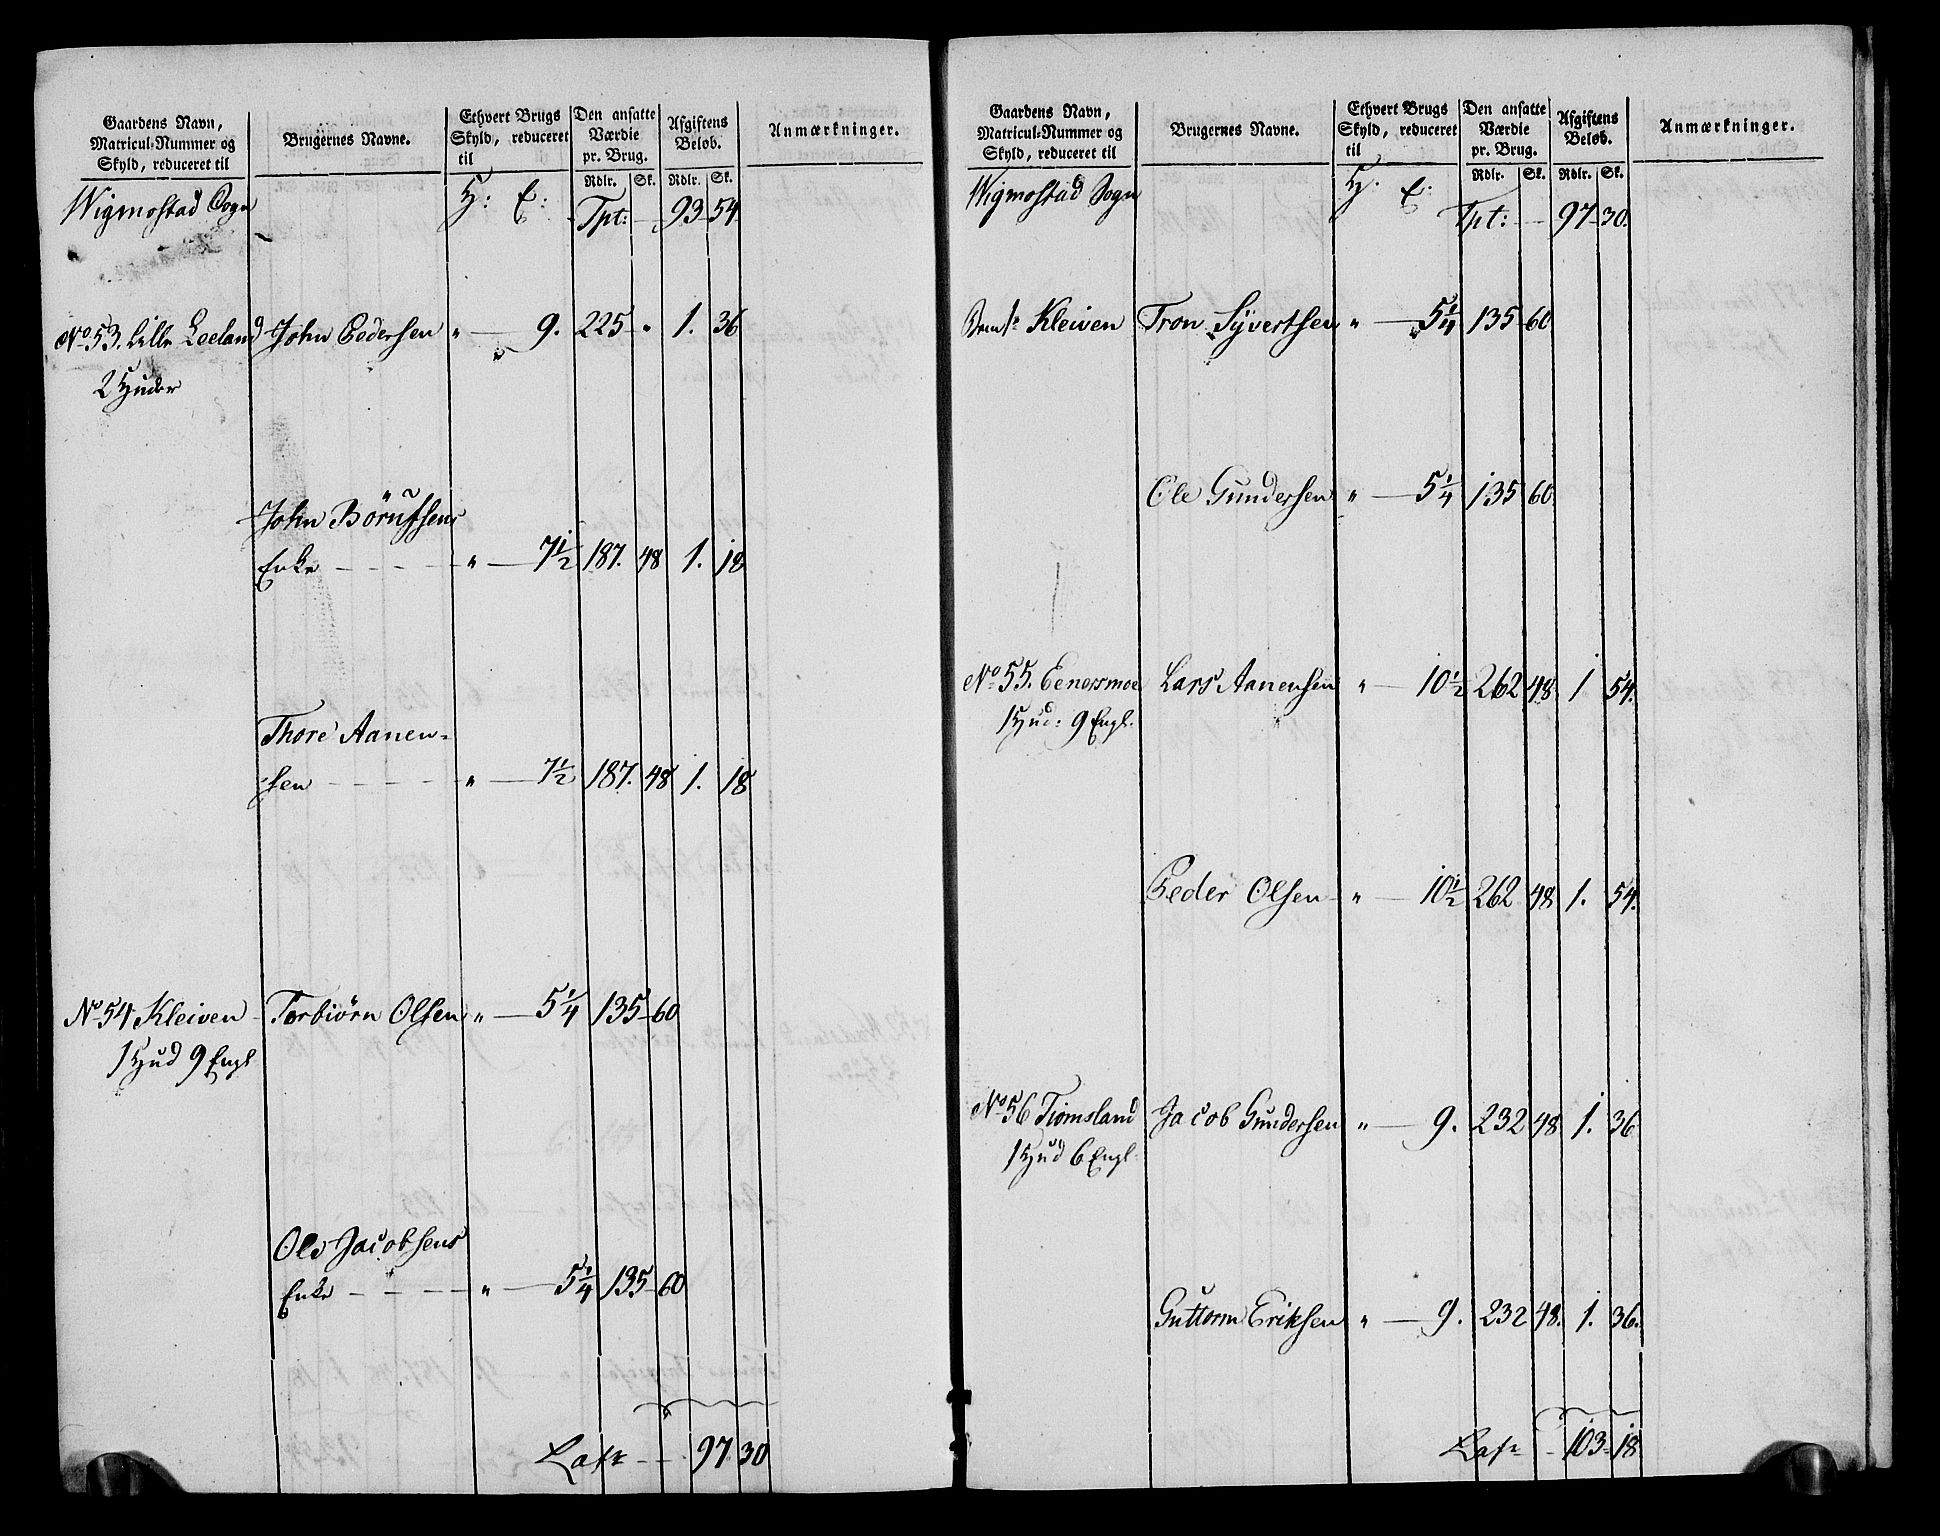 Gaardens Navn, Matricul-Nummer og Skyld, reduceret til | Brugernes Navne. | Ethvert Brugs Skyld, reduceret til | Den ansatte Værdie pr. Brug. | Afgiftens Beløb. | Anmærkninger.
Rdlr. | Sk. | Rdlr. | Sk.
Wigmostad Sogn | H: E: | Tpt: — 93 54
No 53. Lille Leeland | John Pedersen " — 9. 225 " 1. 36
2 Huder
John Börufsens
Enke — — — " — 7½ 187. 48 1. 18
Thore Aanen-
sen — — — " — 7½ 187. 48 1. 18
No 54 Kleiven | Torbiörn Olsen " — 5¼ 135 60
1 Hud 9 Engl
Ole Jacobsens
Enke — — — " — 5¼ 135 60
Lats — 97 30
Gaardens Navn, Matricul-Nummer og Skyld, reduceret til | Brugernes Navne. | Ethvert Brugs Skyld, reduceret til | Den ansatte Værdie pr. Brug. | Afgiftens Beløb. | Anmærkninger.
Rdlr. | Sk. | Rdlr. | Sk.
Wigmostad Sogn | H: E: | Tpt: — 97 30.
Kleiven | Tron Syvertsen " — 5¼ 135 60
Ole Gundersen " — 5¼ 135 60
No 55. Eenersmoe | Lars Aanensen " — 10½ 262 48 1 54.
1 Hud: 9 Engl.
Peder Olsen " — 10½ 262 48 1. 54.
No 56 Tiomsland | Jacob Gundersen " — 9. 232 48 1. 36
1 Hud 6 Engl.
Guttorm Eriksen " — 9. 232 48. 1. 36.
Lats — 103 18